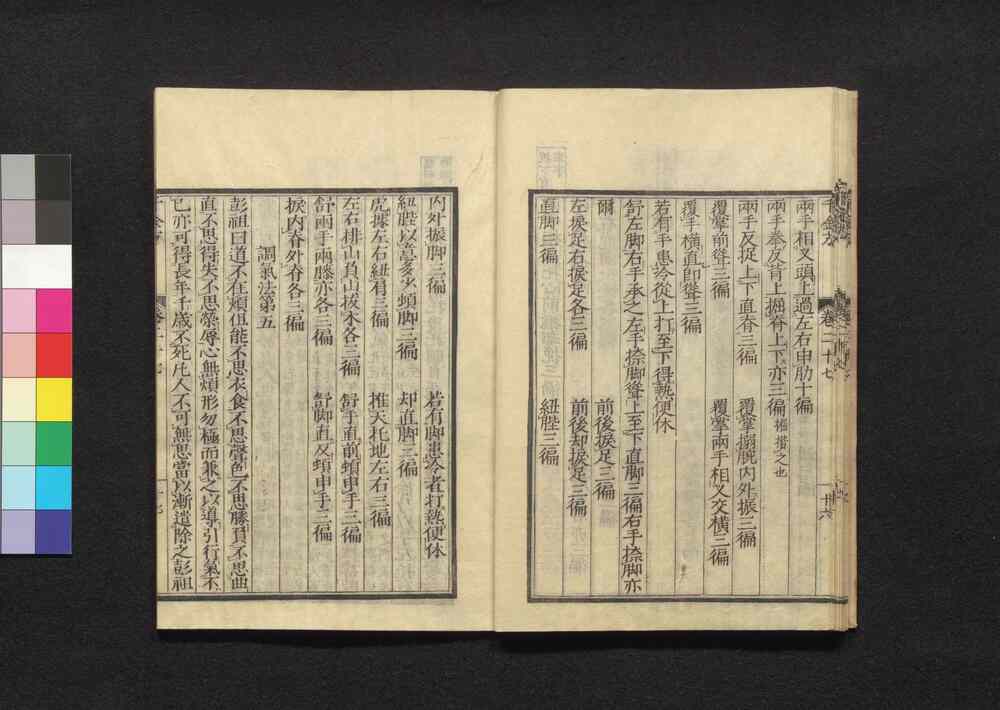 兩手相叉頭上過左右申肋十徧
兩手拳反背上掘脊上下亦三徧 掘揩之也
兩手反捉上下直脊三徧 覆掌搦腕內外振三徧
覆掌前聳三徧 覆掌兩手相叉交橫三徧
覆手橫直即聳三徧
若有手患冷從上打至下得熱便休
舒左脚右手承之左手捺脚聳上至下直脚三徧右手捺脚亦
爾 前後捩足三徧
左捩足右捩足各三徧 前後却捩足三徧
直脚三徧 紐䏶三徧
千金方 卷二十七 廿六
內外振脚三徧 若有脚患冷者打熱便休
紐䏶以意多少頓脚三徧 却直脚三徧
虎據左右紐肩三徧 推天托地左右三徧
左右排山負山拔木各三徧 舒手直前頓申手三徧
舒兩手兩膝亦各三徧 舒脚直反頓申手三徧
捩內脊外脊各三徧
調氣法第五
彭祖曰道不在煩但能不思衣食不思聲色不思勝負不思曲
直不思得失不思榮辱心無煩形勿極而兼之以導引行氣不
已亦可得長年千歲不死凡人不可無思當以漸遣除之彭祖